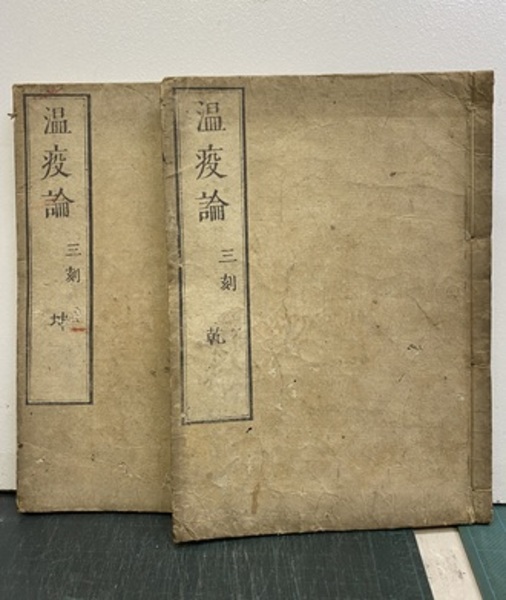 温疫論
三刻
坤
温疫論
三刻
乾